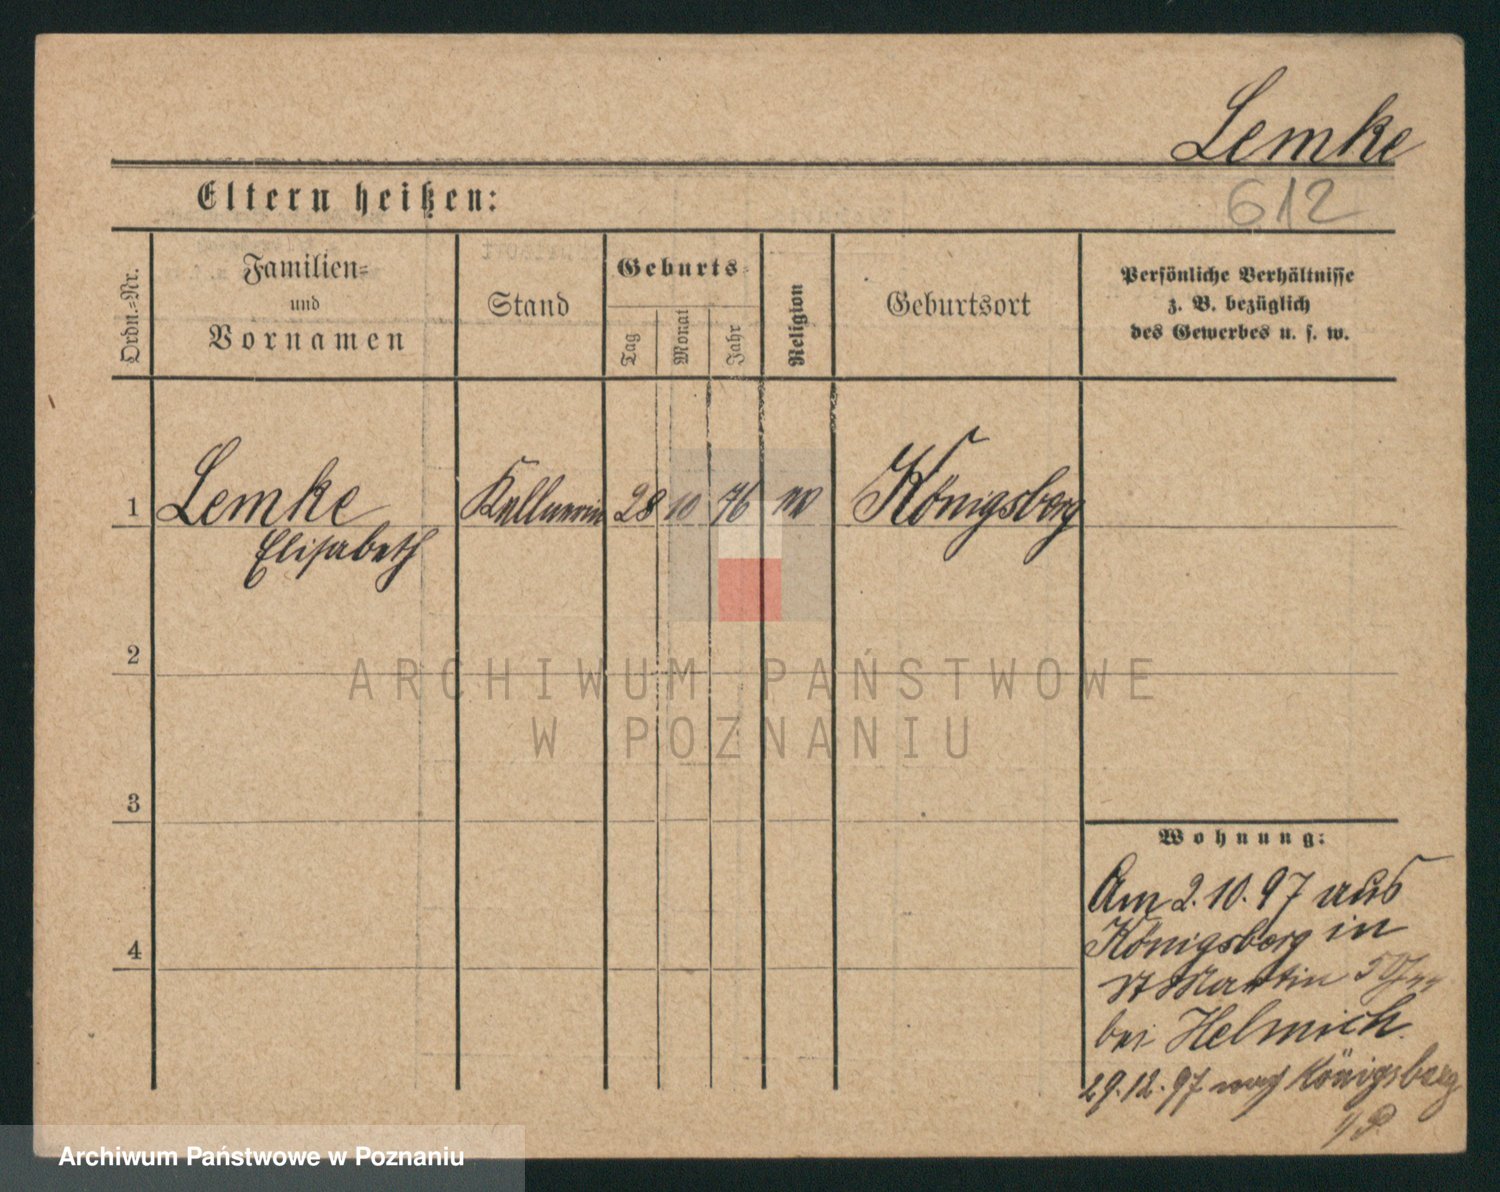 Lemke
612
Eltern heißen:
Ordn.-Nr.
Familien-
und
Vornamen
Stand
Geburts-
Tag
Monat
Jahr
Religion
Geburtsort
Persönliche Verhältnisse
z. B. bezüglich
des Gewerbes u. s. w.
1 Lemke Kellnerin 28 10 76 Königsberg
Elisabeth
2
3
4
ARCHIWUM PAŃSTWOWE
W POZNANIU
Wohnung:
Am 2.10.97 aus
Königsberg in
St Martin 5
bei Helmich.
29.12.97 nach Königsberg
Archiwum Państwowe w Poznaniu